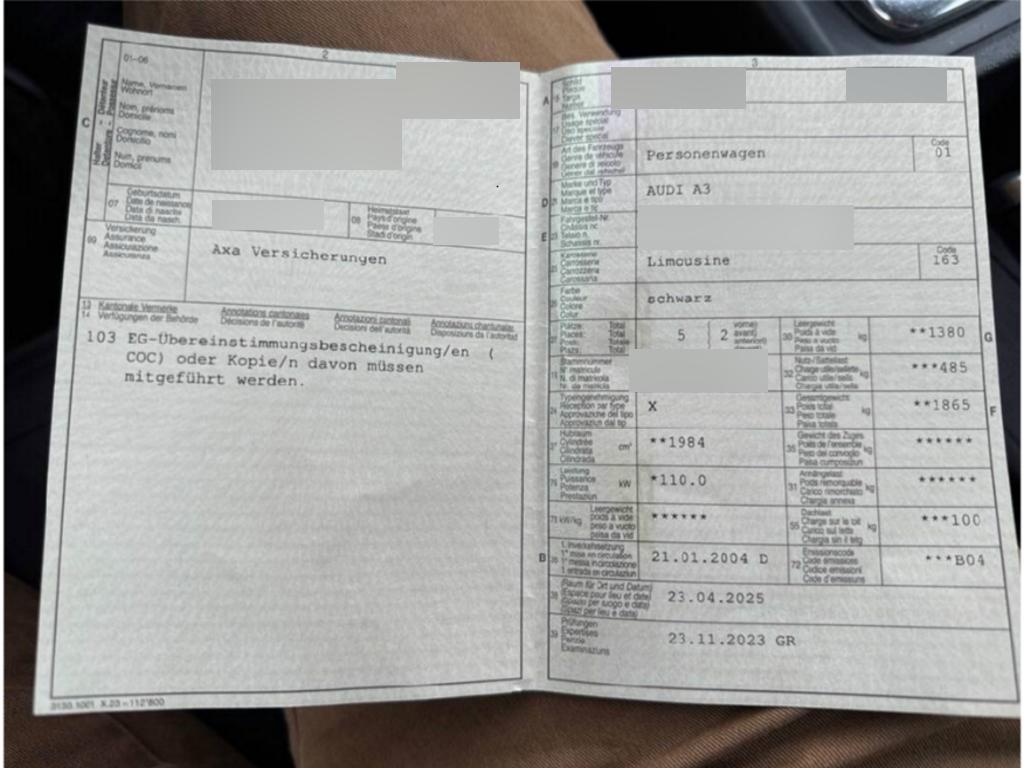 2
01-06
C
Halter Détenteur
Detentore Possessur
Name, Vornamen
Wohnort
Nom, prénoms
Domicile
Cognome, nomi
Domicilio
Num, prenums
Domicil
07
Geburtsdatum
Date de naissance
Data di nascita
Data da nasch.
08
Heimatstaat
Pays d'origine
Paese d'origine
Stadi d'origin
09
Versicherung
Assurance
Assicurazione
Assicuranza
Axa Versicherungen
13 Kantonale Vermerke
14 Verfügungen der Behörde
Annotations cantonales
Décisions de l'autorité
Annotazioni cantonali
Decisioni dell'autorità
Annotaziuns chantunalas
Disposiziuns da l'autoritad
103 EG-Übereinstimmungsbescheinigung/en (
COC) oder Kopie/n davon müssen
mitgeführt werden.
X.23 - 112'800
3
A
15
Schild
Plaque
Targa
Numer
17
Bes. Verwendung
Usage spécial
Uso speciale
Diever spezial
Art des Fahrzeugs
Genre de véhicule
Genere di veicolo
Personenwagen
Code
01
D
Marke und Typ
Marque et type
Marca e tipo
Marca e tip
AUDI A3
E
23
Fahrgestell-Nr.
Châssis no
Telaio n.
Schassis nr.
Karosserie
Carrosserie
Carrozzeria
Carossaria
Limousine
Code
163
Farbe
Couleur
Colore
Colur
schwarz
27
Plätze: Total
Places: Total
Posti: Totale
Plazs: Total
5
2
vorne
avant
anteriori
30
Leergewicht
Poids à vide
Peso a vuoto
Paisa da vid
kg
**1380
G
18
Stammnummer
N° matricule
N. di matricola
Nr. da matricla
32
Nutz-/Sattellast
Charge utile/sellette
Carico utile/sella
Chargia utila/sella
kg
***485
24
Typengenehmigung
Réception par type
Approvazione del tipo
Approvaziun dal tip
X
33
Gesamtgewicht
Poids total
Peso totale
Paisa totala
kg
**1865
F
37
Hubraum
Cylindrée
Cilindrata
Cilindrada
cm³
**1984
35
Gewicht des Zuges
Poids de l'ensemble
Peso del convoglio
Paisa cumposiziun
kg
******
76
Leistung
Puissance
Potenza
Prestaziun
kW
*110.0
31
Anhängelast
Poids remorquable
Carico rimorchiato
Chargia annexa
kg
******
kW/kg
Leergewicht
poids à vide
peso a vuoto
paisa da vid
******
55
Dachlast
Charge sur le toit
Carico sul tetto
Chargia sin il tetg
kg
***100
B
36
1. Inverkehrsetzung
1re mise en circulation
1a messa in circolazione
1. entrada en circulaziun
21.01.2004 D
72
Emissionscode
Code émissions
Codice emissioni
Code d'emissiuns
***B04
38
(Raum für Ort und Datum)
(Espace pour lieu et date)
(Spazio per luogo e data)
(Spazi per lieu e data)
23.04.2025
39
Prüfungen
Expertises
Perizie
Examinaziuns
23.11.2023 GR